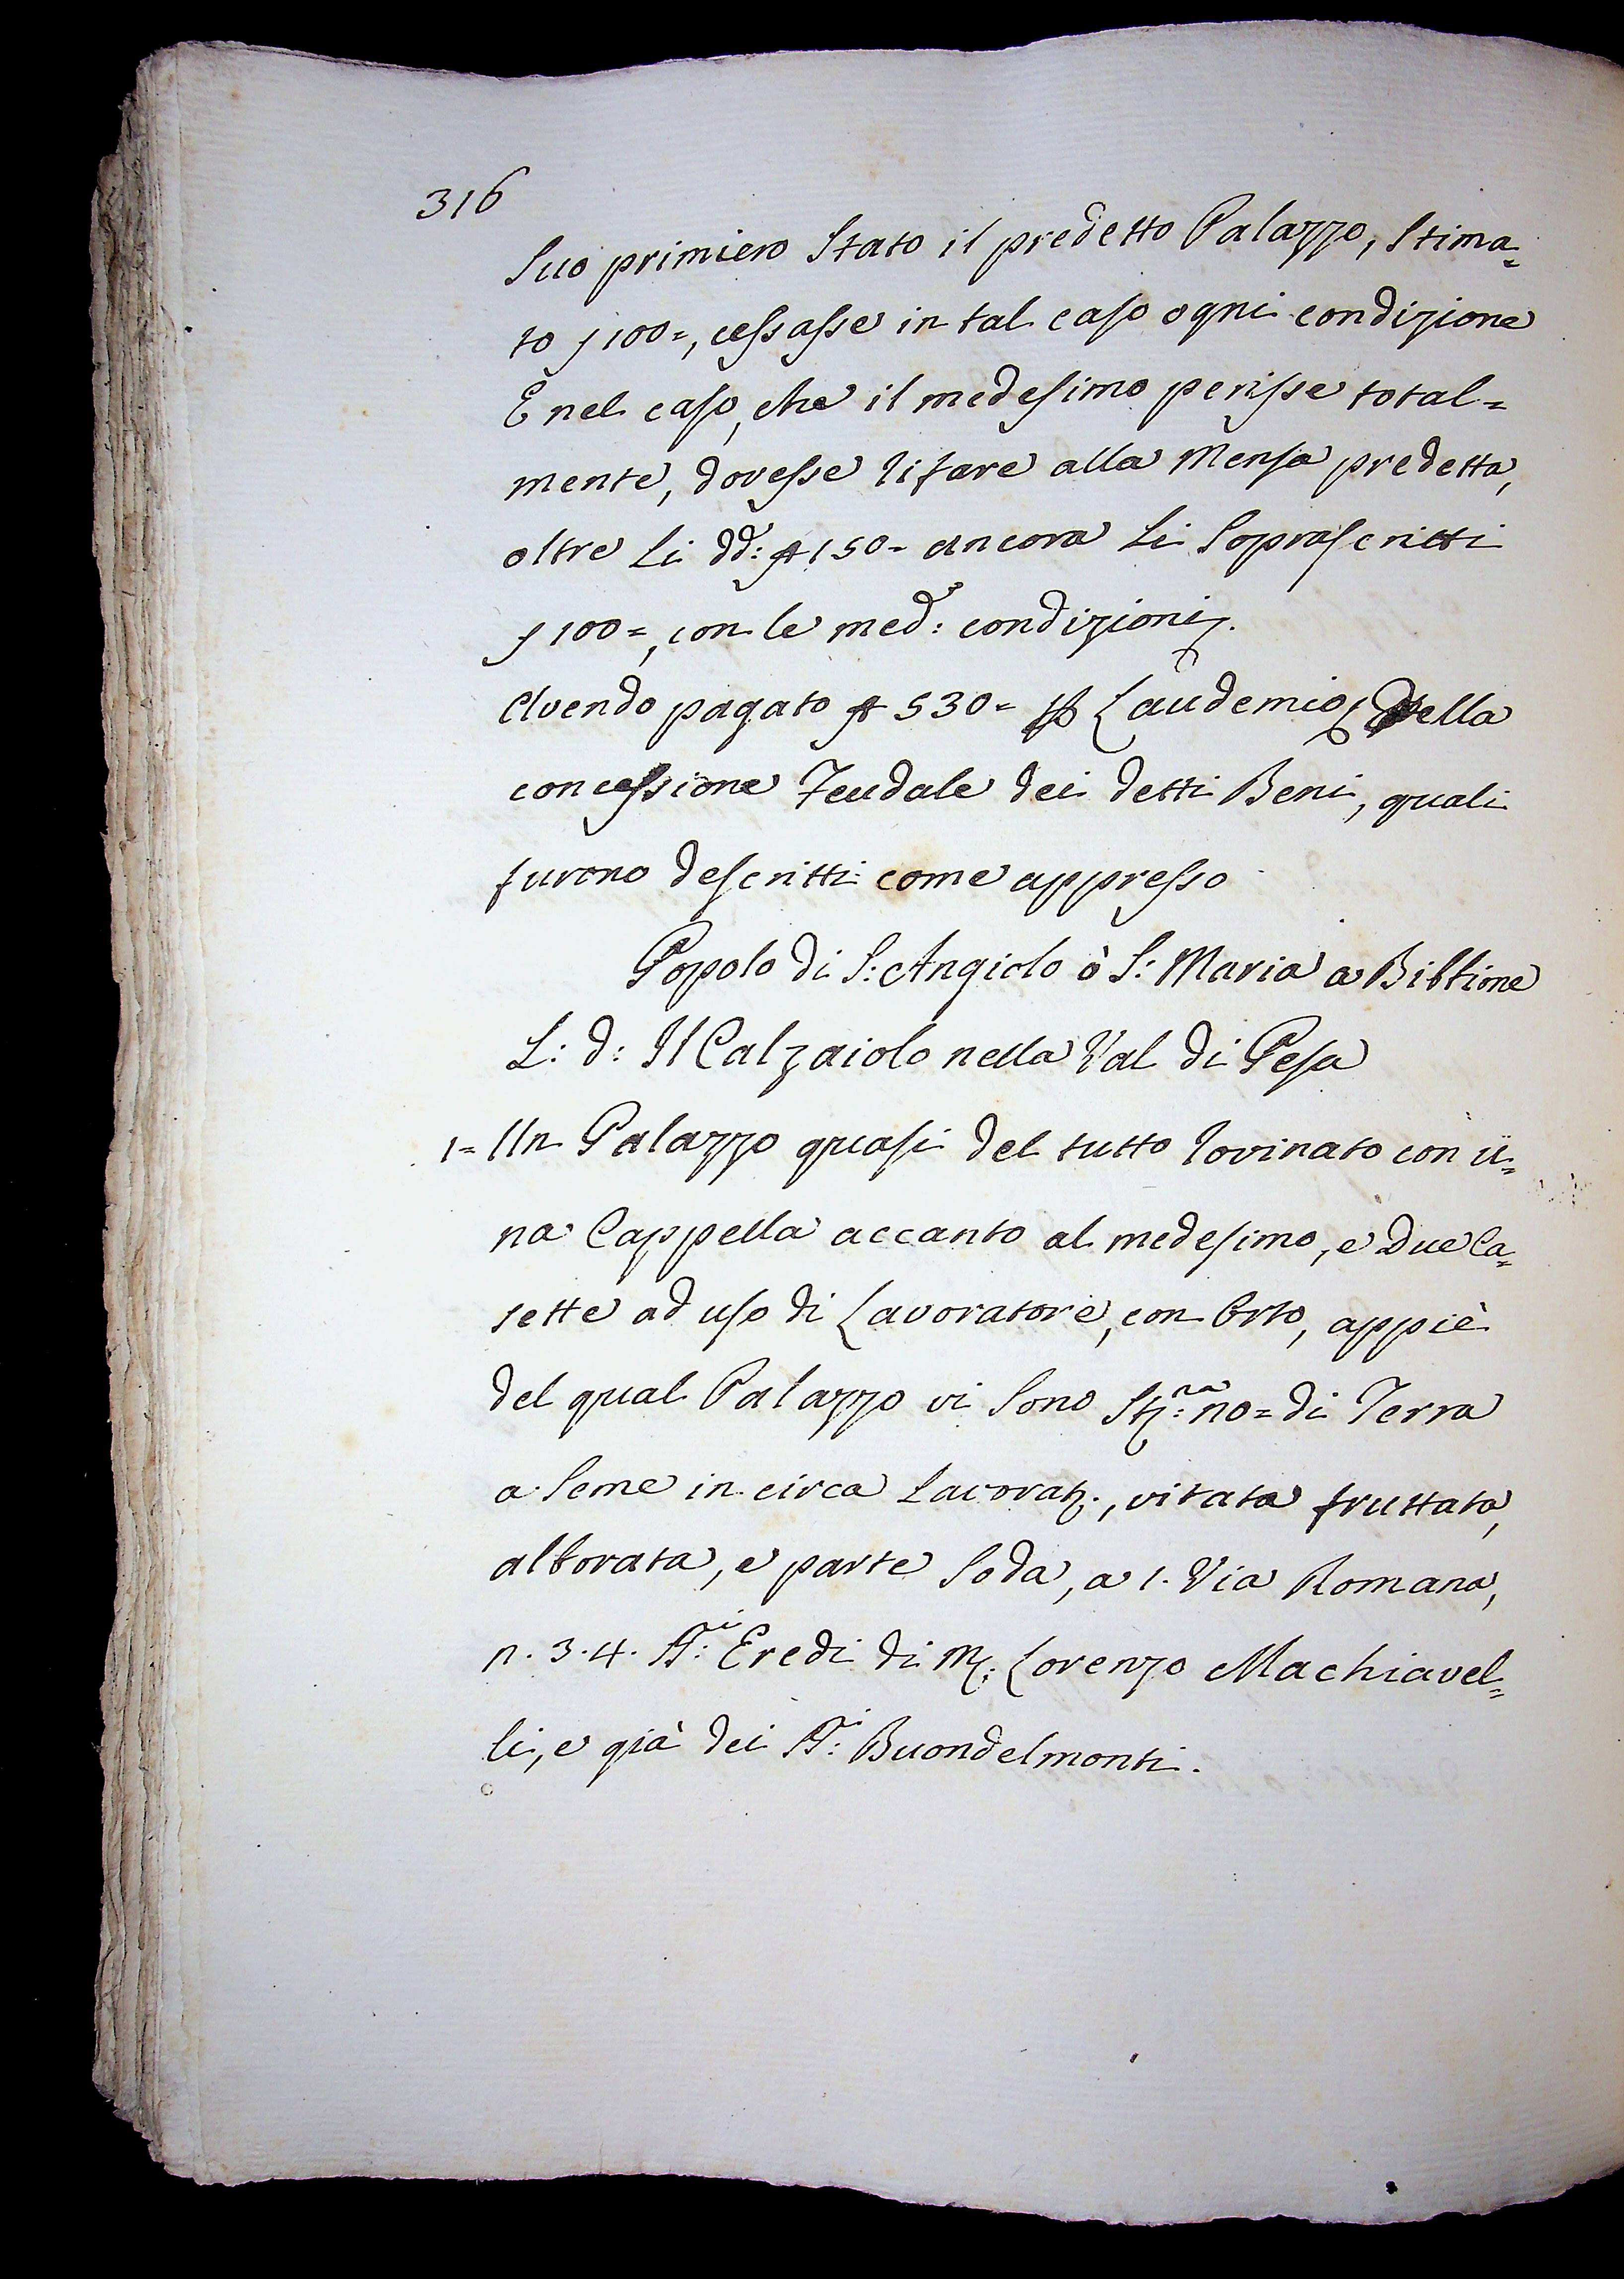 316
Suo primiero Stato il predetto Palazzo, Stima=
to ƒ 100=, cessasse in tal caso ogni condizione
E nel caso, che il medesimo perisse total=
mente, dovesse rifare alla Mensa predetta,
oltre Li dd: 150= ancora Li Soprascritti
ƒ 100=, con le med: condizioni.
Avendo pagato 530= Laudemio della
concessione Feudale dei detti Beni, quali
furono descritti come appresso
Popolo di S: Angiolo ò S: Maria a Bibbione
L: d: Il Calzaiolo nella Val di Pesa
1= Un Palazzo quasi del tutto rovinato con u=
na Cappella accanto al medesimo, e Due Ca=
sette ad uso di Lavoratore, con Orto, appiè
del qual Palazzo vi Sono di Terra
a Seme in circa Lavorat., vitata fruttata,
alborata, e parte Soda, a 1. Via Romana,
3. 4. Eredi di M: Lorenzo Machiavel=
li, e già dei Buondelmonti.